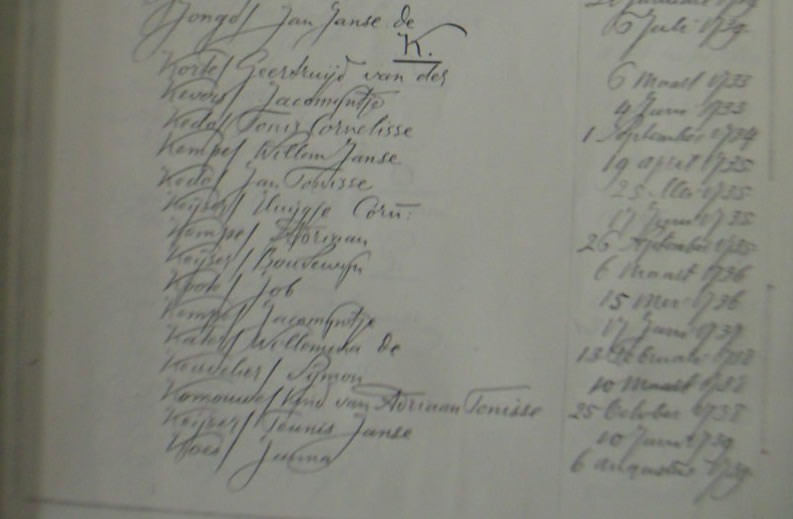 Jongd/ Jan Janse de 6 Juli 1739
K.
Korte/ Geertruijd van der 6 Maart 1733
Kevers/ Jacomijntje 4 Juni 1733
Kedo/ Tonis Cornelisse 1 September 1734
Kempe/ Willem Janse 19 april 1735
Kedo/ Jan Tonisse 25 Mei 1735
Keijser/ Huijgje Corn: 17 Juni 1735
Kempe/ Adriaan 26 September 1735
Keijser/ Boudewijn 6 Maart 1736
Kook/ Job 15 Mei 1736
Kempe/ Jacomijntje 17 Juni 1737
Kater/ Willemina de 13 Februari 1738
Keuvelier/ Sijmon 10 Maart 1738
Kind van Adriaan Tonisse 25 October 1738
Keijser/ Teunis Janse 10 Juni 1739
Janna 6 augustus 1739